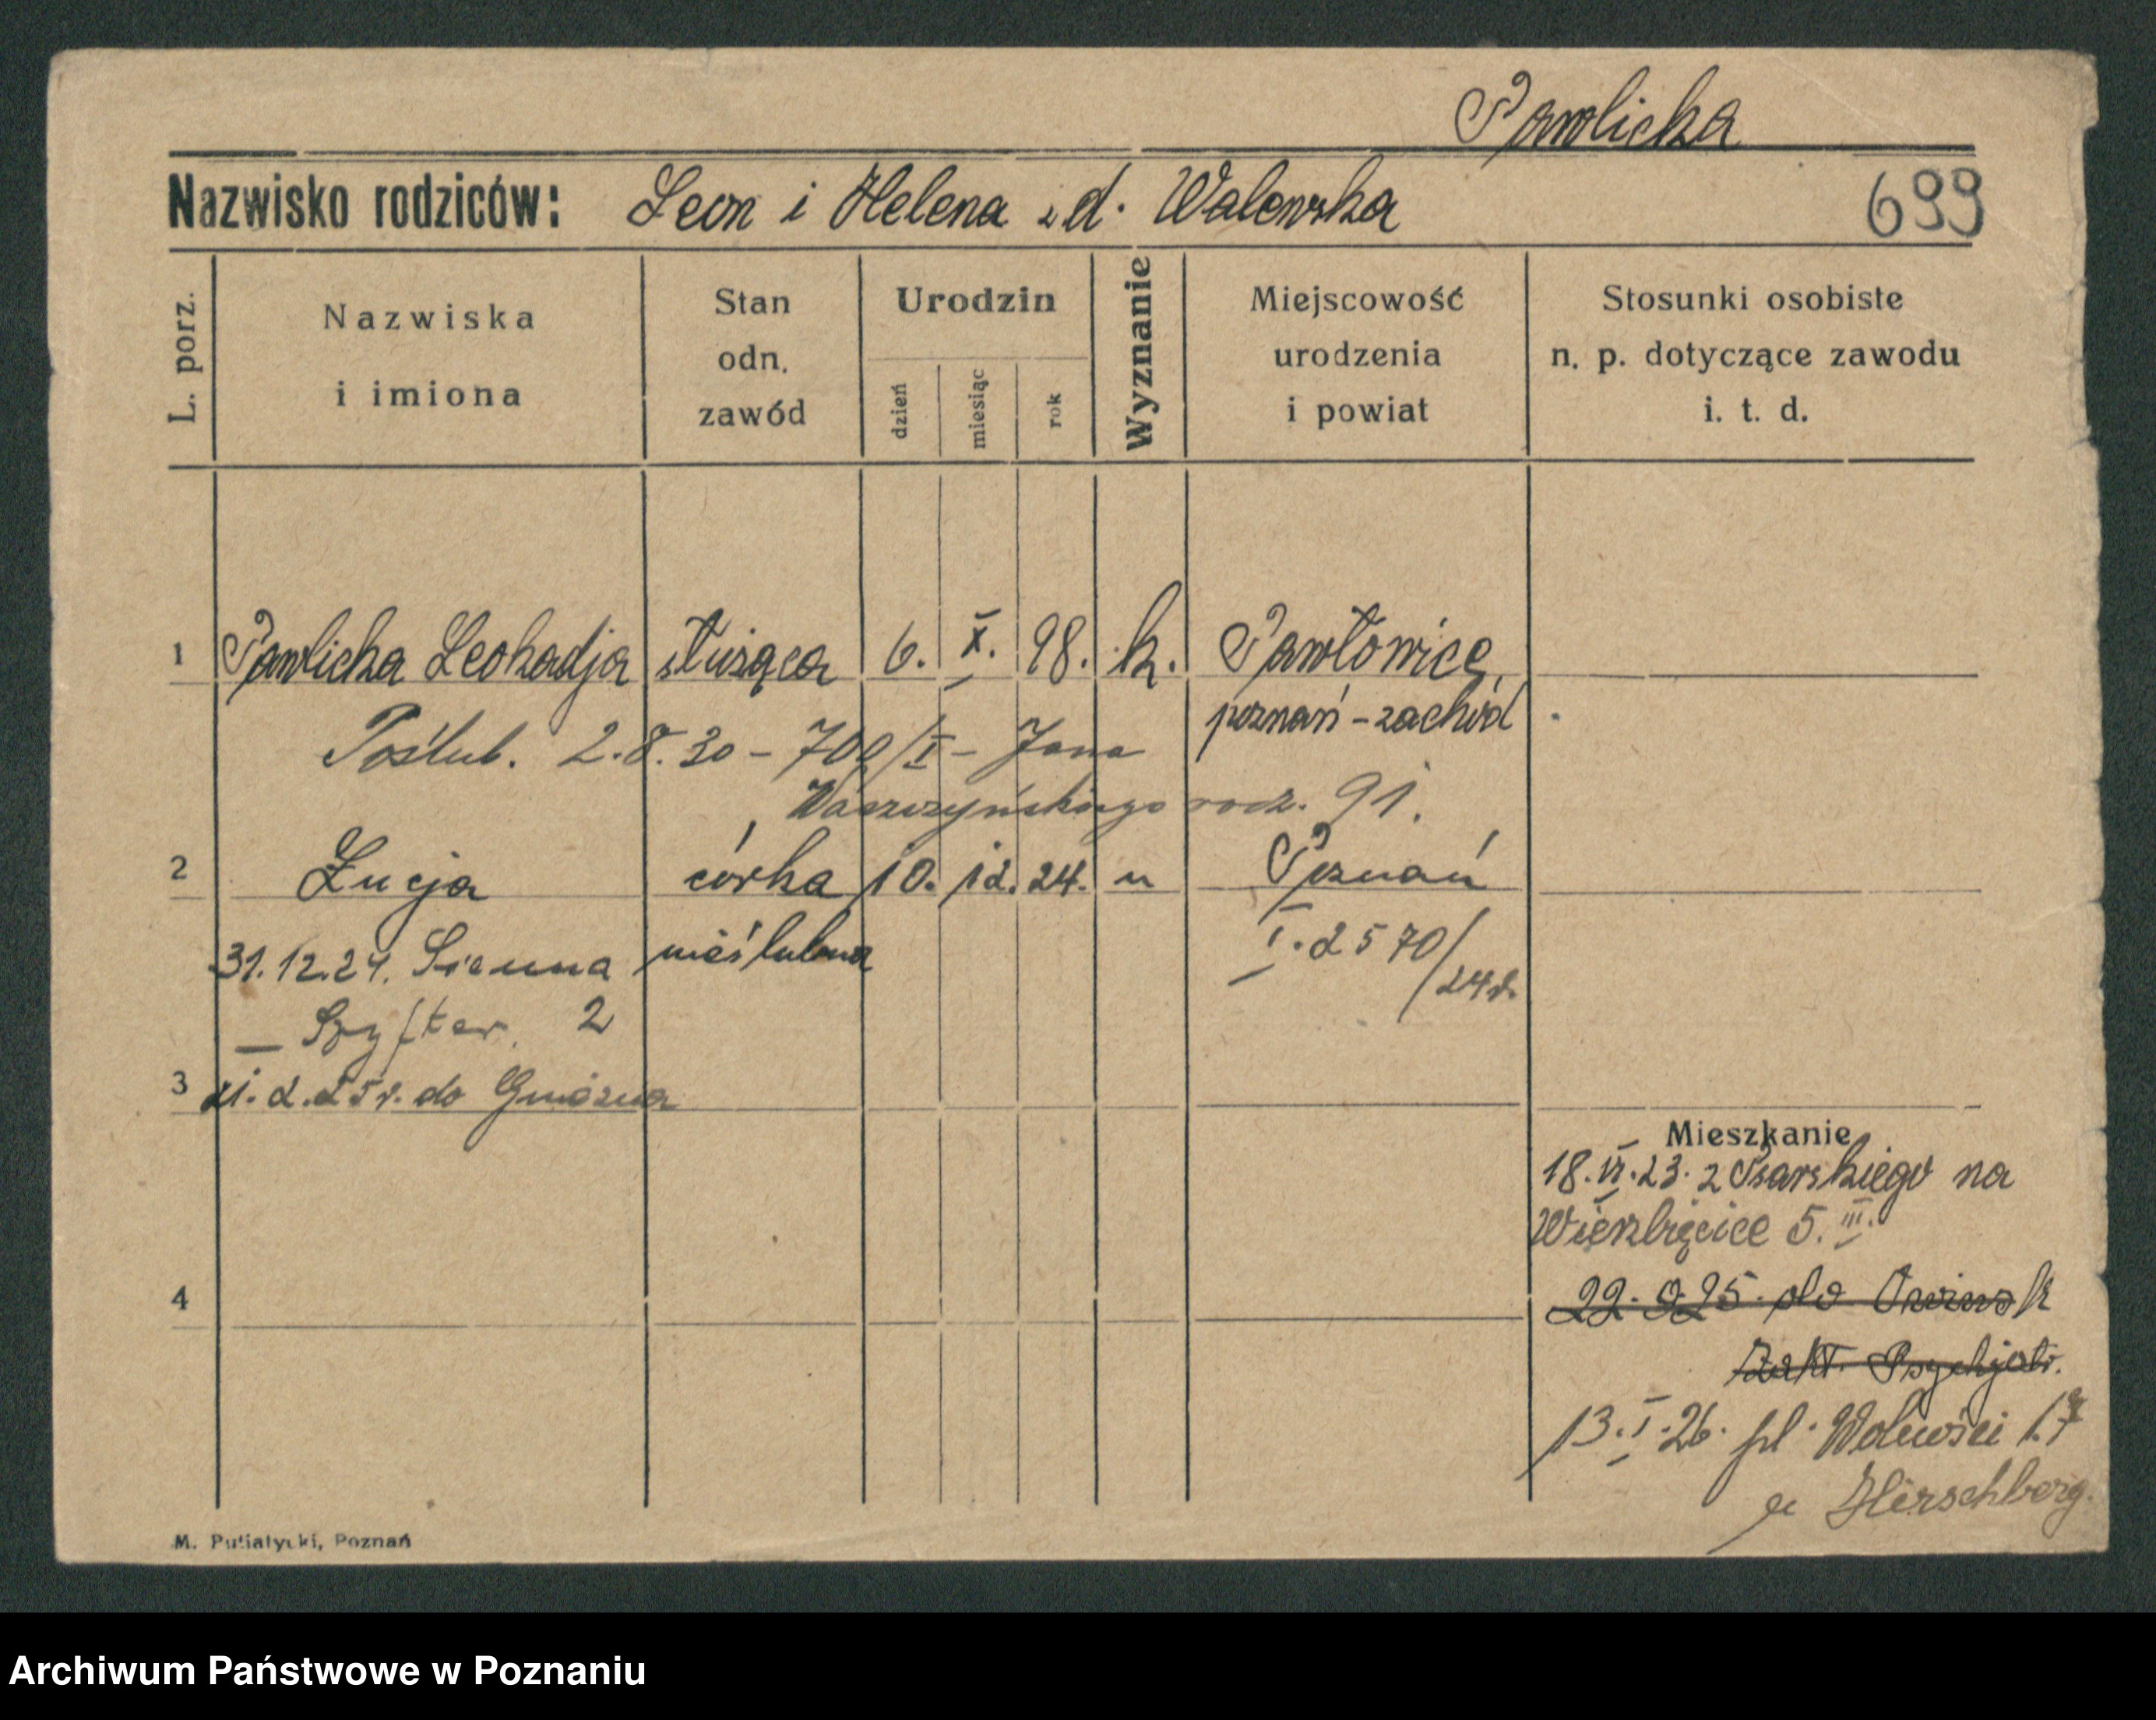 Pawlicka
Nazwisko rodziców: Leon i Helena z d. Walewska 699
L. porz. Nazwiska i imiona Stan odn. zawód Urodzin dzień miesiąc rok Wyznanie Miejscowość urodzenia i powiat Stosunki osobiste n. p. dotyczące zawodu i. t. d.
1 Pawlicka Leokadja służąca 6. X. 98. k. Pawłowice
poznań - zachód
Poślub. 2.8.30 - 709/I - Jana
Waszczyńskiego rodz. 91.
2 Łucja córka 10. 12. 24. " Poznań
31.12.24. Sienna nieślubna I. 2570/24r.
2
3 21.2.25r. do Gniezna
Mieszkanie
18.VI.23. z na
Wierzbięcice 5. III.
4 22. 9 25. do Owinsk
Zakł. Psychjatr.
13. I. 26. pl. Wolności 17
u Hirschberg.
M. Putiatycki, Poznań
Archiwum Państwowe w Poznaniu